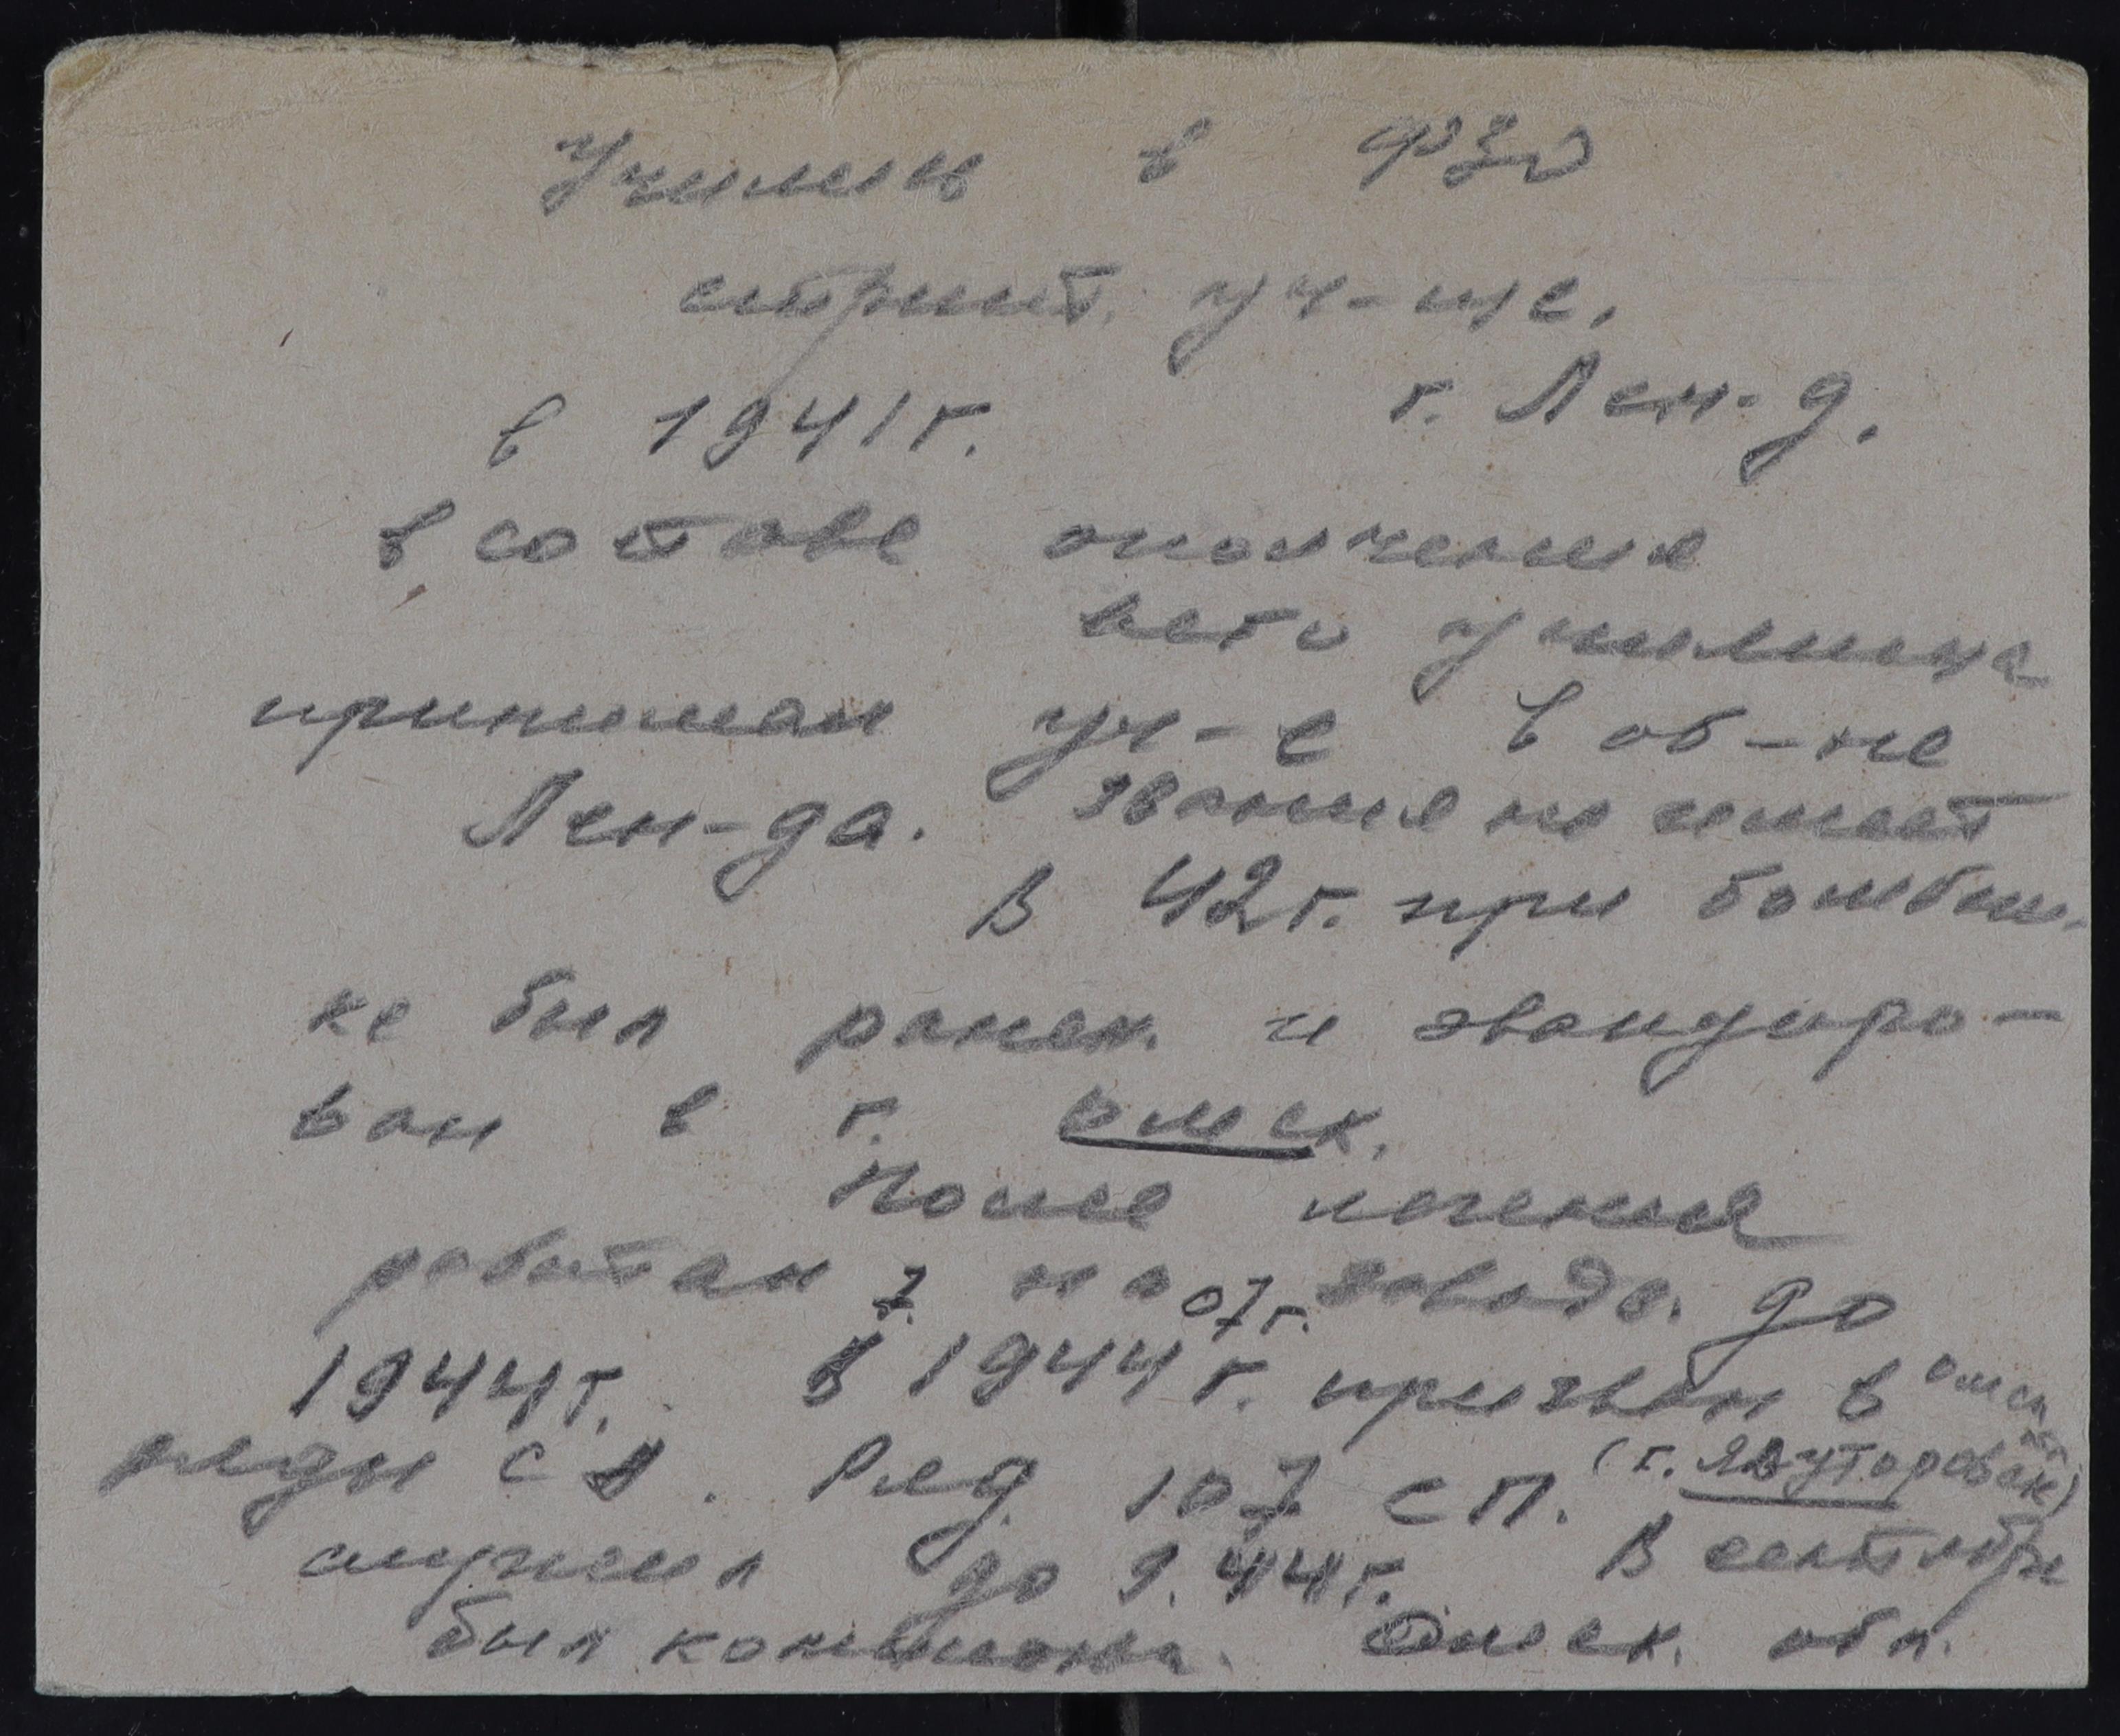 Учился в ФЗО
строит. уч-ще.
в 1941 г. г. Лен-д.
в составе ополчения
всего училища
принимал уч-е в об-не
Лен-да. звания не имеет
В 42 г. при бомбеж.
ке был ранен. и эвакуиро-
ван в г. Омск.
После лечения
работал на заводе. до
7. 07 г.
1944 г. В 1944 г. призван в Омск
ряды СА. Ряд. 107 СП. (г. Ялуторовск)
служил до 9.44 г. В сентябре
был комиссова. Омск. обл.